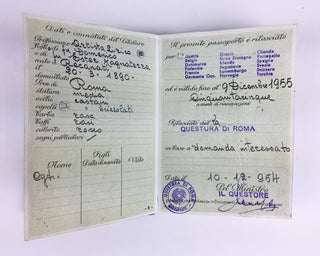 Dati e connotati del Titolare
Professione Artista Lirico
Figlio di fu Domenico
e di Ester Magnaterra
nato a Recanati
il 20-3-1890-
domiciliato
in Roma
statura media
occhi castani
capelli brizzolati
barba rasa
baffi rasi
colorito roseo
segni particolari
Figli
Nome Data di nascita Visto
Il presente passaporto è rilasciato
per Austria Grecia Olanda
Belgio Gran Bretagna Portogallo
Danimarca Irlanda Spagna
Finlandia Islanda Svezia
Francia Lussemburgo Svizzera
Germania Occ. Norvegia Turchia
ed è valido fino al 9 Dicembre 1955
Cinquantacinque
salvo
Rilasciato da la
QUESTURA DI ROMA
in base a domanda interessato
Dato il 10-12-954
Pel Ministro
IL QUESTORE
QUESTURA DI ROMA